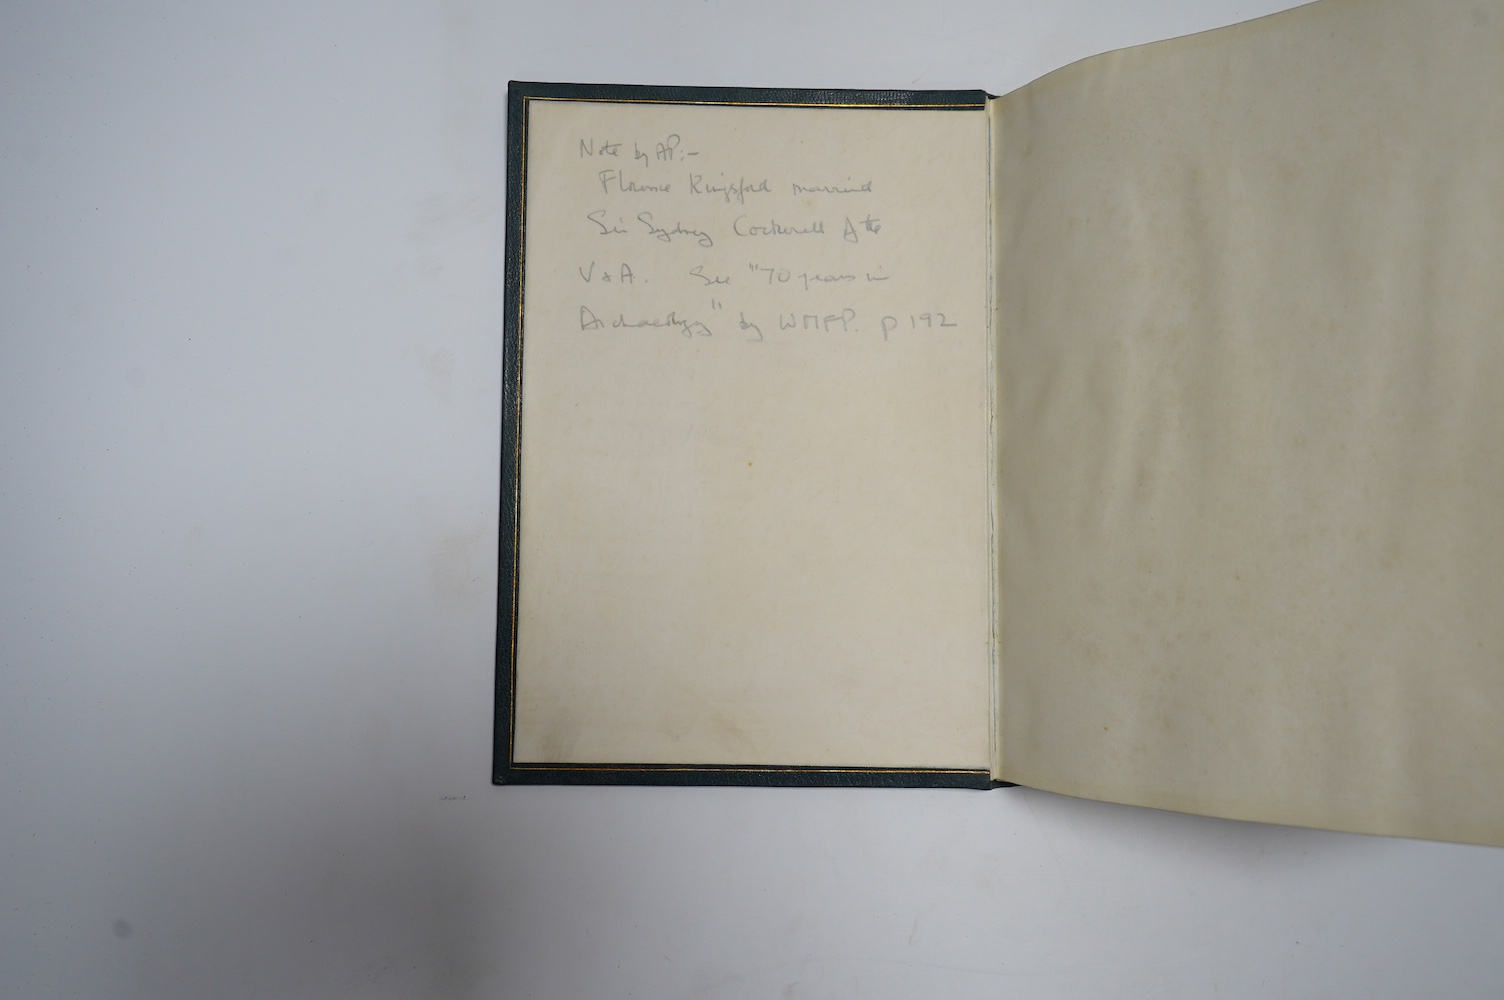 Note by AP:-
Florence Kingsford married
Sir Sydney Cockerell of the
V & A. See "70 years in
Archaeology" by WMFP. p 192